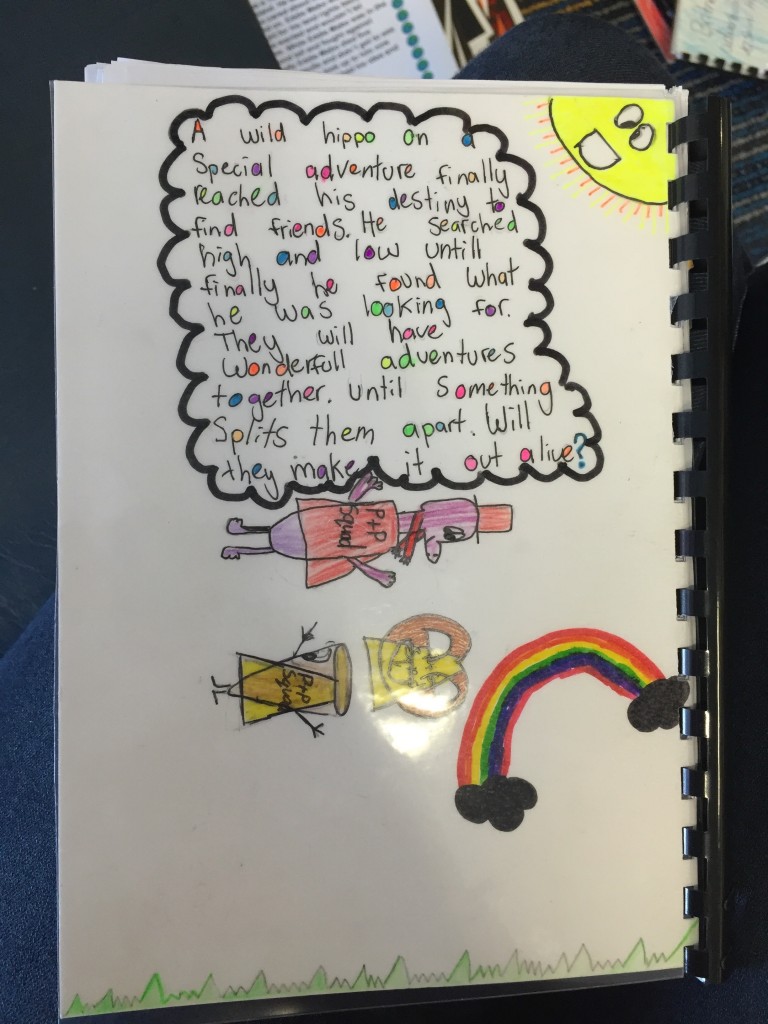 A wild hippo on a
Special adventure finally
reached his destiny to
find friends. He searched
high and low untill
finally he found what
he was looking for.
They will have
Wonderfull adventures
together. until something
Splits them apart. Will
they make it out alive?
P+P
Squad
P+P
Squad